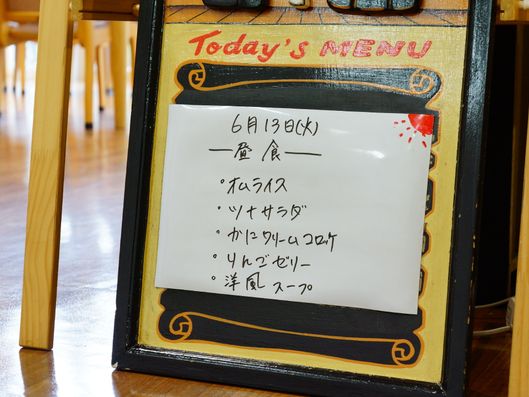 Today's MENU
6月13日(火)
—昼食—
・オムライス
・ツナサラダ
・かにクリームコロッケ
・りんごゼリー
・洋風スープ